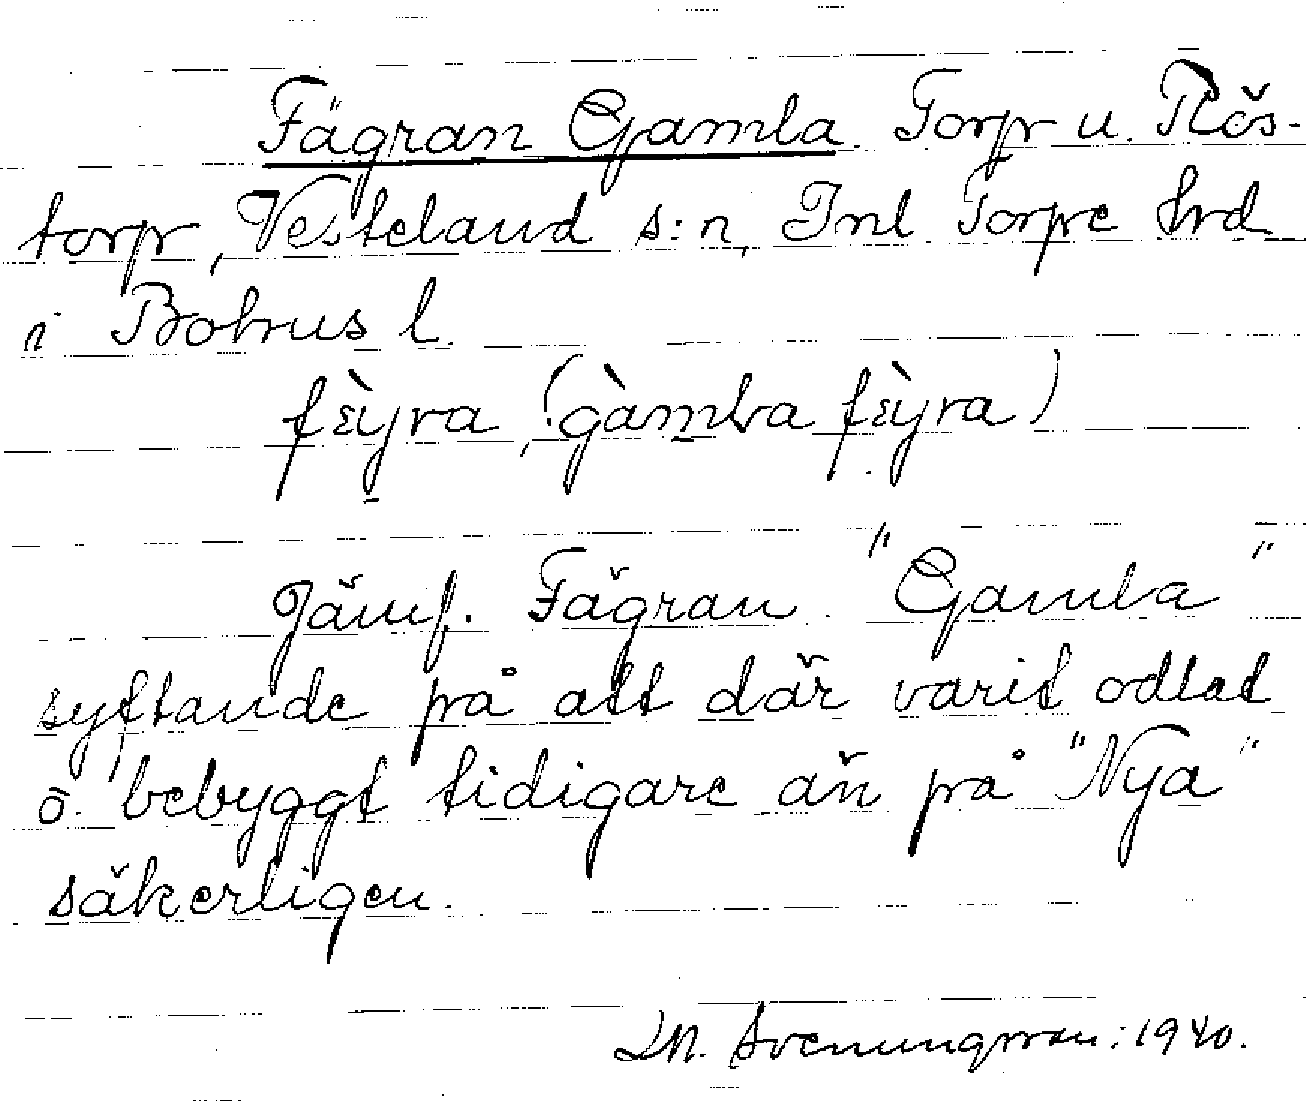 Fägran Gamla. Torp u. Rös-
torp, Vesteland s:n, Inl Torpe hrd
i Bohus l.
fɛ̀yra, (gàmla fɛ̀yra)
Jämf. Fägran. "Gamla"
syftande på att där varit odlat
o. bebyggt tidigare än på "Nya"
säkerligen.
M. Svenungsson: 1940.